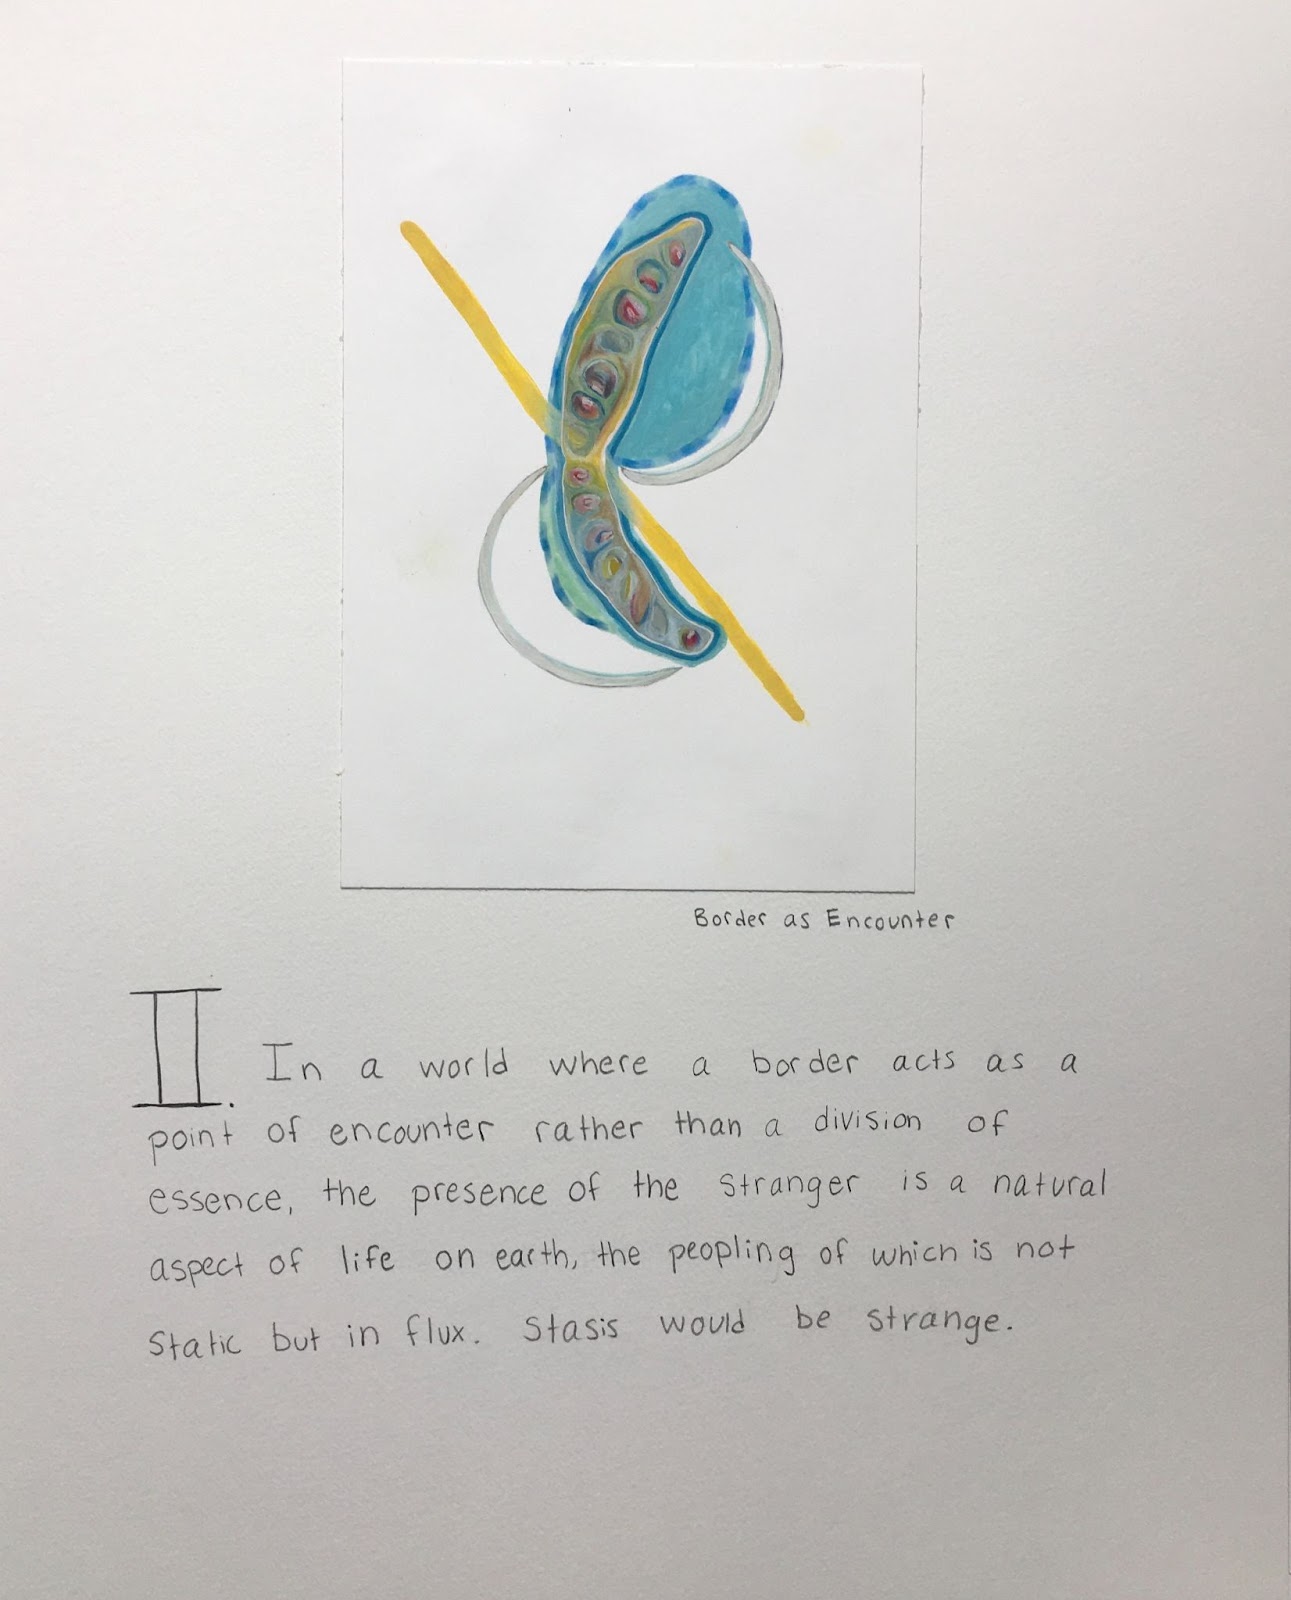 Border as Encounter
II. In a world where a border acts as a
point of encounter rather than a division of
essence, the presence of the stranger is a natural
aspect of life on earth, the peopling of which is not
static but in flux. Stasis would be strange.